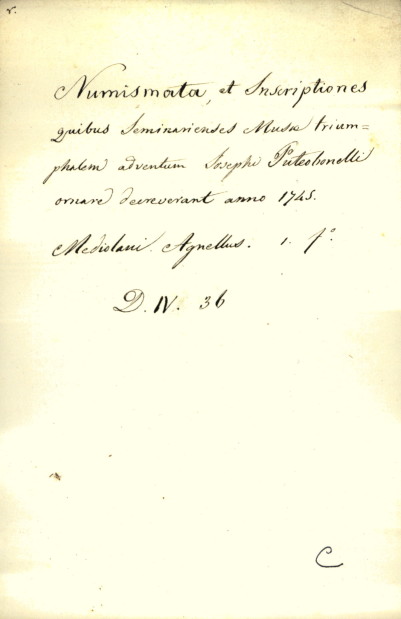 v.
Numismata, et Inscriptiones
quibus Seminarienses Musæ trium=
phalem adventum Josephi Puteobonelli
ornare decreverant anno 1745.
Mediolani. Agnellus. 1. fº.
D. IV. 36
C